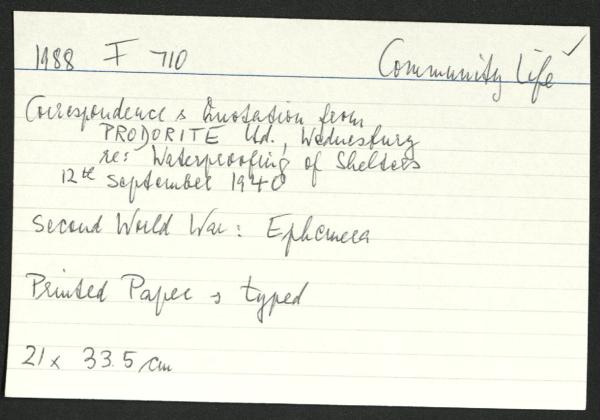 1988 F 710 Community Life ✓
Correspondence & Quotation from
PRODORITE Ltd., Wednesbury
re: Waterproofing of Shelters
12th September 1940
Second World War: Ephemera
Printed Paper & typed
21 x 33.5 cm